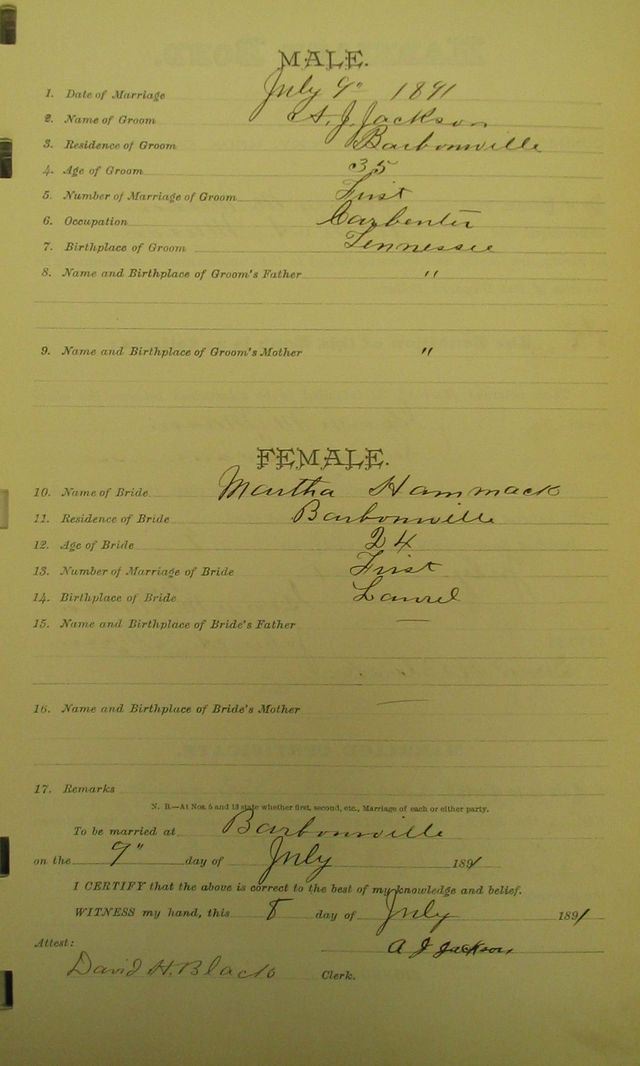 MALE.
1. Date of Marriage July 9" 1891
2. Name of Groom A. J. Jackson
3. Residence of Groom Barbourville
4. Age of Groom 35
5. Number of Marriage of Groom First
6. Occupation Carpenter
7. Birthplace of Groom Tennessee
8. Name and Birthplace of Groom's Father "
9. Name and Birthplace of Groom's Mother "
FEMALE.
10. Name of Bride Martha Hammack
11. Residence of Bride Barbourville
12. Age of Bride 24
13. Number of Marriage of Bride First
14. Birthplace of Bride Laurel
15. Name and Birthplace of Bride's Father —
16. Name and Birthplace of Bride's Mother —
17. Remarks
N. B.—At Nos. 5 and 13 state whether first, second, etc., Marriage of each or either party.
To be married at Barbourville
on the 9" day of July 1891
I CERTIFY that the above is correct to the best of my knowledge and belief.
WITNESS my hand, this 8 day of July 1891
Attest: A J Jackson
David H. Black Clerk.